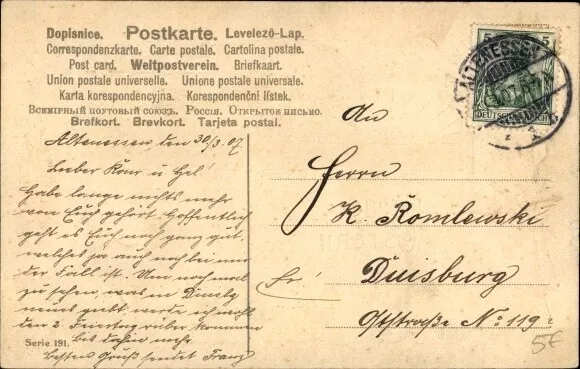 Dopisnice. Postkarte. Levelező-Lap.
Correspondenzkarte. Carte postale. Cartolina postale.
Post card. Weltpostverein. Briefkaart.
Union postale universelle. Unione postale universale.
Karta korespondencyjna. Korespondenční lístek.
Всемірный почтовый союзъ. Россія. Открытое письмо.
Brefkort. Brevkort. Tarjeta postal.
ALTENESSEN
DEUTSCHES REICH
Altenessen den 30/3.07
Lieber Konr u Hel!
Habe lange nichts mehr
von Euch gehört. Hoffentlich
geht es Euch noch ganz gut,
welches ja auch noch bei mir
der Fall ist. Um noch mal
zu sehen, was in Duisbg
neues gibt werde ich wohl
den 2 Feiertag rüber kommen
Bis dahin mehr
Besten Gruß sendet Franz
Serie 191.
An
Herrn
K. Romlewski
Fr. Duisburg
Oststraße No. 119
5€